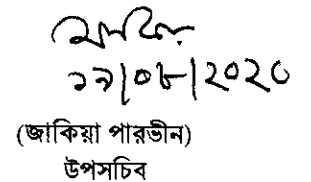 ১৯/০৮/২০২০
(জাকিয়া পারভীন)
উপসচিব